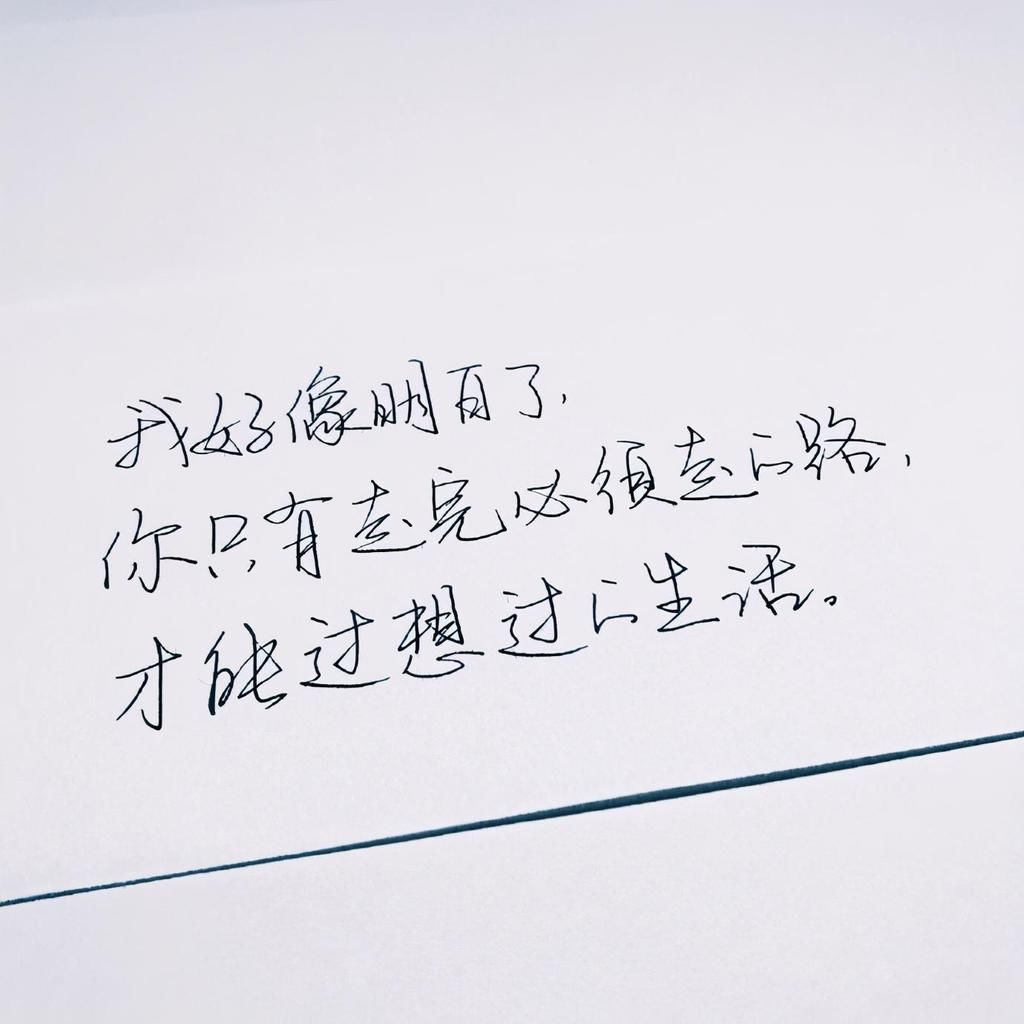 我好像明白了，
你只有走完必须走的路，
才能过想过的生活。